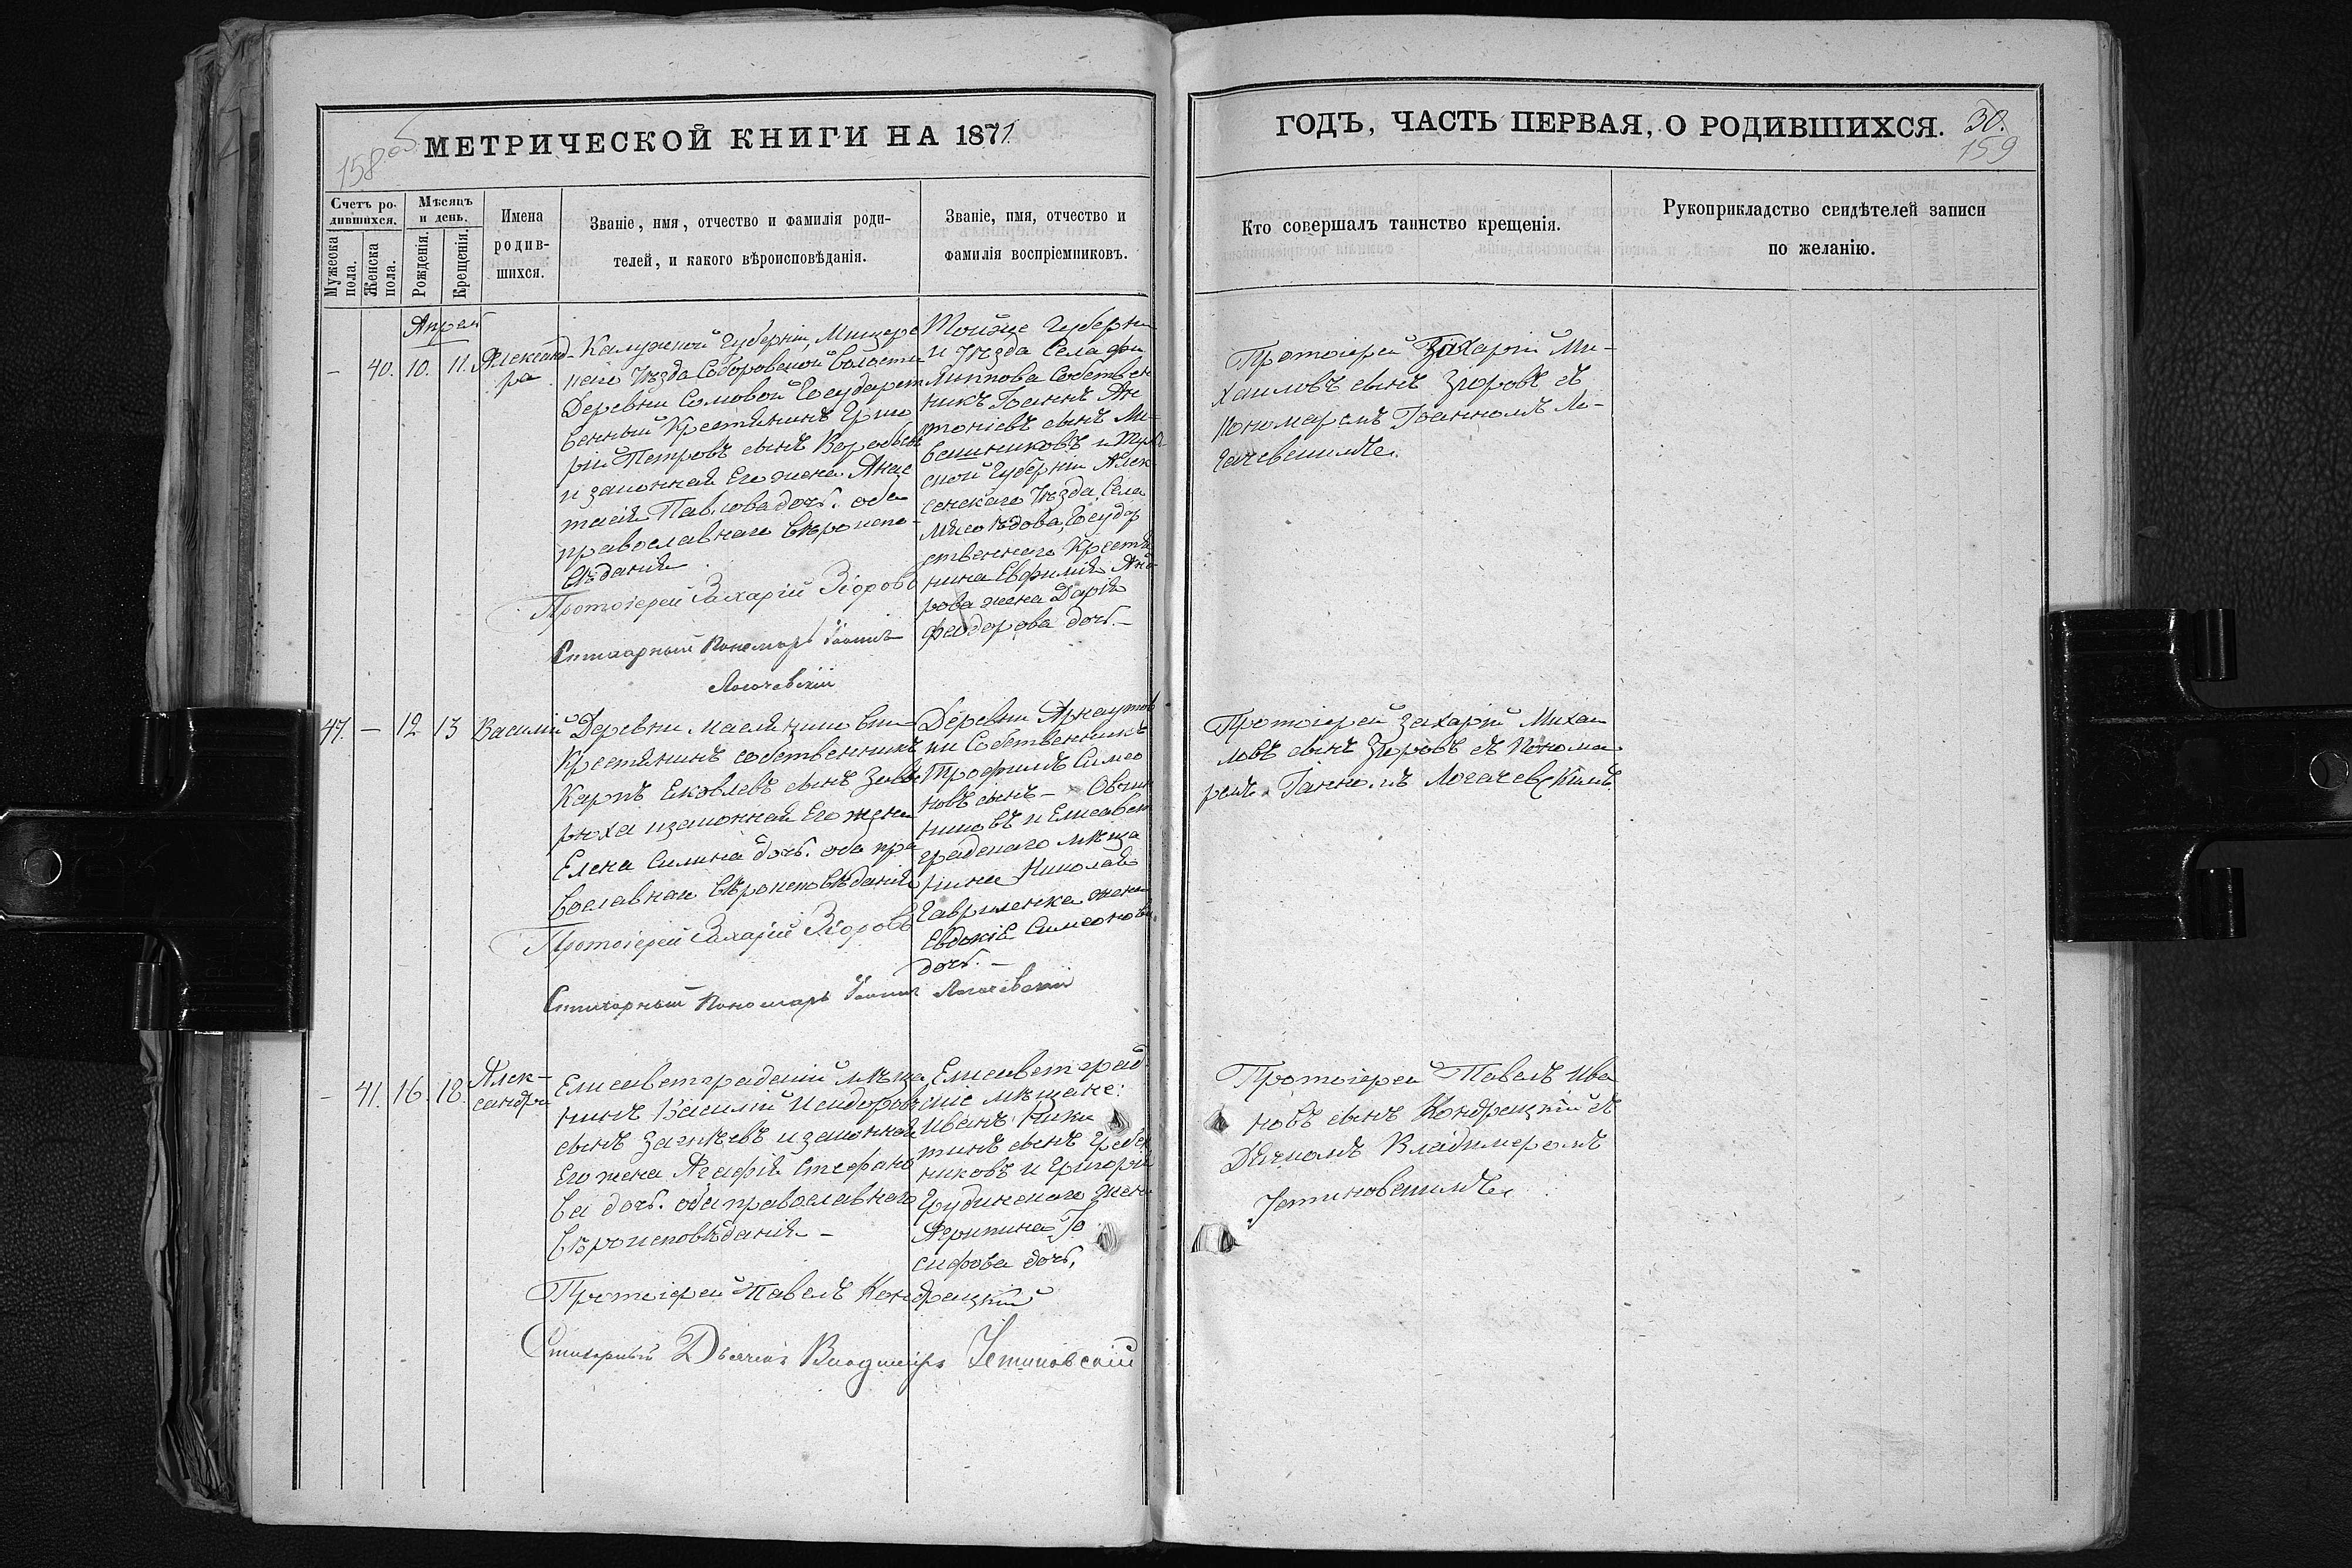 МЕТРИЧЕСКОЙ КНИГИ НА 1871.
ГОДЪ, ЧАСТЬ ПЕРВАЯ, О РОДИВШИХСЯ.
158 об
30.
159
Счетъ ро-
дившихся.
Мужеска
пола.
Женска
пола.
Мѣсяцъ
и день.
Рожденія.
Крещенія.
Имена
родив-
шихся.
Званіе, имя, отчество и фамилія роди-
телей, и какого вѣроисповѣданія.
Званіе, имя, отчество и
фамилія воспріемниковъ.
Кто совершалъ таинство крещенія.
Рукоприкладство свидѣтелей записи
по желанію.
Апрель
- 40. 10. 11. Александ-
ра
Калужской Губерніи,
Уѣзда Волости
Деревни Государст
венный Крестянинъ Григо
рій Петровъ сынъ
и законная Его жена
Павлова дочь. оба
православнаго вѣроиспо-
вѣданія.
Протоіерей Захарій Зіоровъ
Стихарный Пономарь Іоаннъ
Логачевскій
Тойже Губерни
и Уѣзда Села Фи
липпова Собствен
никъ Іоаннъ Ан
тоніевъ сынъ
и Туль
ской Губерніи Алек
сенскаго Уѣзда, Села
Государ
ственнаго Крестя
нина Евфимія
жена Дарія
Феодорова дочь.-
Протоіерей Захарій Ми-
хаиловъ сынъ Зіоровъ съ
Пономаремъ Іоанномъ Ло-
гачевскимъ.
47. - 12 13 Василій
Деревни
Крестянинъ собственникъ
Карпъ Яковлевъ сынъ
и законная Его жена
Елена Силина дочь. оба пра
вославнаи вѣроисповѣданія
Протоіерей Захарій Зіоровъ
Стихарный Пономарь Іоаннъ Логачевскій
Деревни
ки Собственникъ
Трофимъ Симео
новъ сынъ - Овчин
никовъ и Елисавет
градскаго мѣща
нина Николая
Гавриленка жена
Евдокія Симеонова
дочь.-
Протоіерей Захарій Михаи
ловъ сынъ Зіоровъ съ Понома
ремъ Іоанномъ Логачевскимъ
- 41. 16. 18. Алек-
сандра
Елисаветградскій мѣща
нинъ Василій Исидоровъ
сынъ и законная
Его жена Агафія Стефано
ва дочь. оба православнаго
вѣроисповѣданія -
Протоіерей Павелъ Кондрацкій
Стихарный Дьячекъ Владиміръ Устиновскій
Елисаветград
скіе мѣщане:
Иванъ Ники
тинъ сынъ Гребен
никовъ и Григорія
Грудинскаго жена
Акрипина Іо
сифова дочь,
Протоіерей Павелъ Ива
новъ сынъ Кондрацкій съ
Дячкомъ Владимеромъ
Устиновскимъ